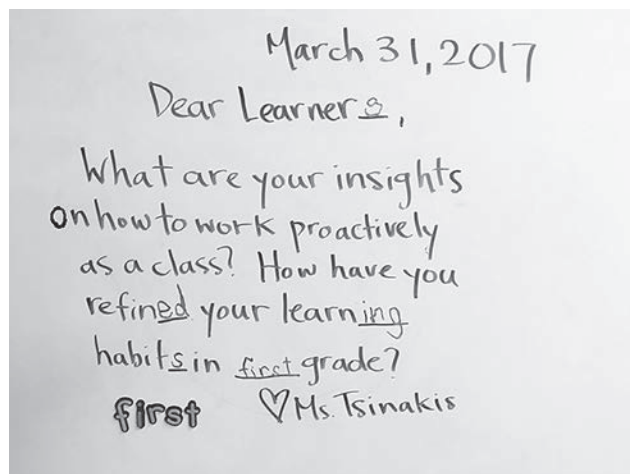 March 31, 2017
Dear Learners,
What are your insights
on how to work proactively
as a class? How have you
refined your learning
habits in first grade?
first ♡ Ms. Tsinakis